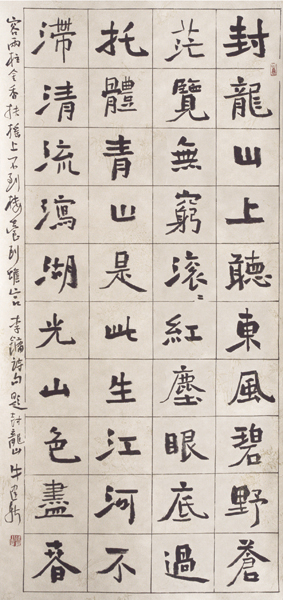 封龍山上聽東風碧野蒼
茫覽無窮滾〻紅塵眼底過
托體青山是此生江河不
滯清流瀉湖光山色盡春
上不到 到 李 詩句題封龍山 牛